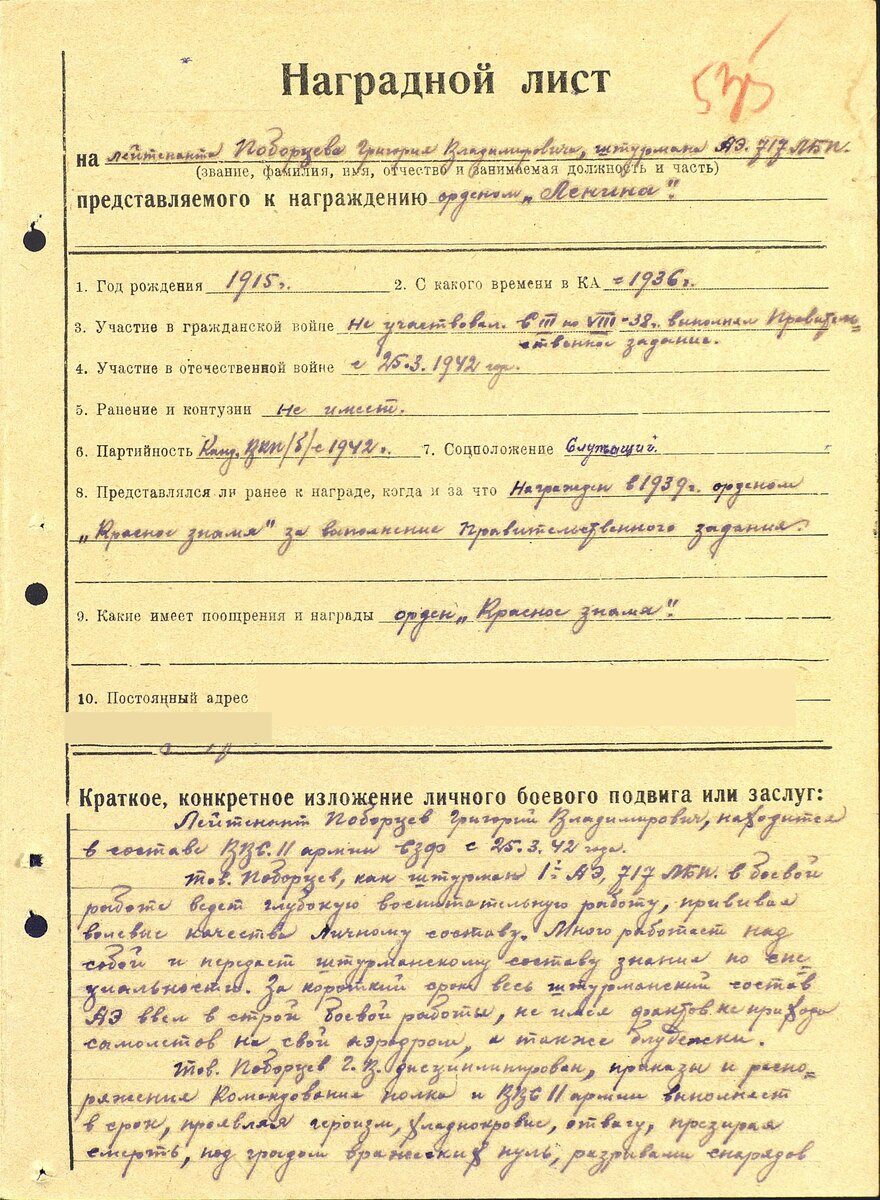 Наградной лист
на лейтенанта Поборцева Григория Владимировича, штурмана АЭ. 717 ЛБП.
(звание, фамилия, имя, отчество и занимаемая должность и часть)
представляемого к награждению орденом „Ленина".
1. Год рождения 1915 г. 2. С какого времени в КА с 1936 г.
3. Участие в гражданской войне Не участвовал. С III по VIII-38г. выполнял Правитель=
ственное задание.
4. Участие в отечественной войне с 25.3.1942 года.
5. Ранение и контузии Не имеет.
6. Партийность Канд. ВКП/б/ с 1942 г. 7. Соцположение Служащий.
8. Представлялся ли ранее к награде, когда и за что Награжден в 1939 г. орденом
„Красное знамя" за выполнение Правительственного задания.
9. Какие имеет поощрения и награды орден „Красное знамя".
10. Постоянный адрес
Краткое, конкретное изложение личного боевого подвига или заслуг:
Лейтенант Поборцев Григорий Владимирович, находится
в составе ВВС 11 армии СЗФ с 25.3.42 года.
Тов. Поборцев, как штурман 1й АЭ, 717 ЛБП. в боевой
работе ведет глубокую воспитательную работу, прививая
волевые качества личному составу. Много работает над
собой и передает штурманскому составу знания по спе
циальности. За короткий срок весь штурманский состав
АЭ ввел в строй боевой работы, не имея фактов не прихода
самолетов на свой аэродром, а также блудежки.
Тов. Поборцев Г. В. дисциплинирован, приказы и распо-
ряжения Командования полка и ВВС 11 армии выполняет
в срок, проявляя героизм, хладнокровие, отвагу, презирая
смерть, под градом вражеских пуль, разрывами снарядов